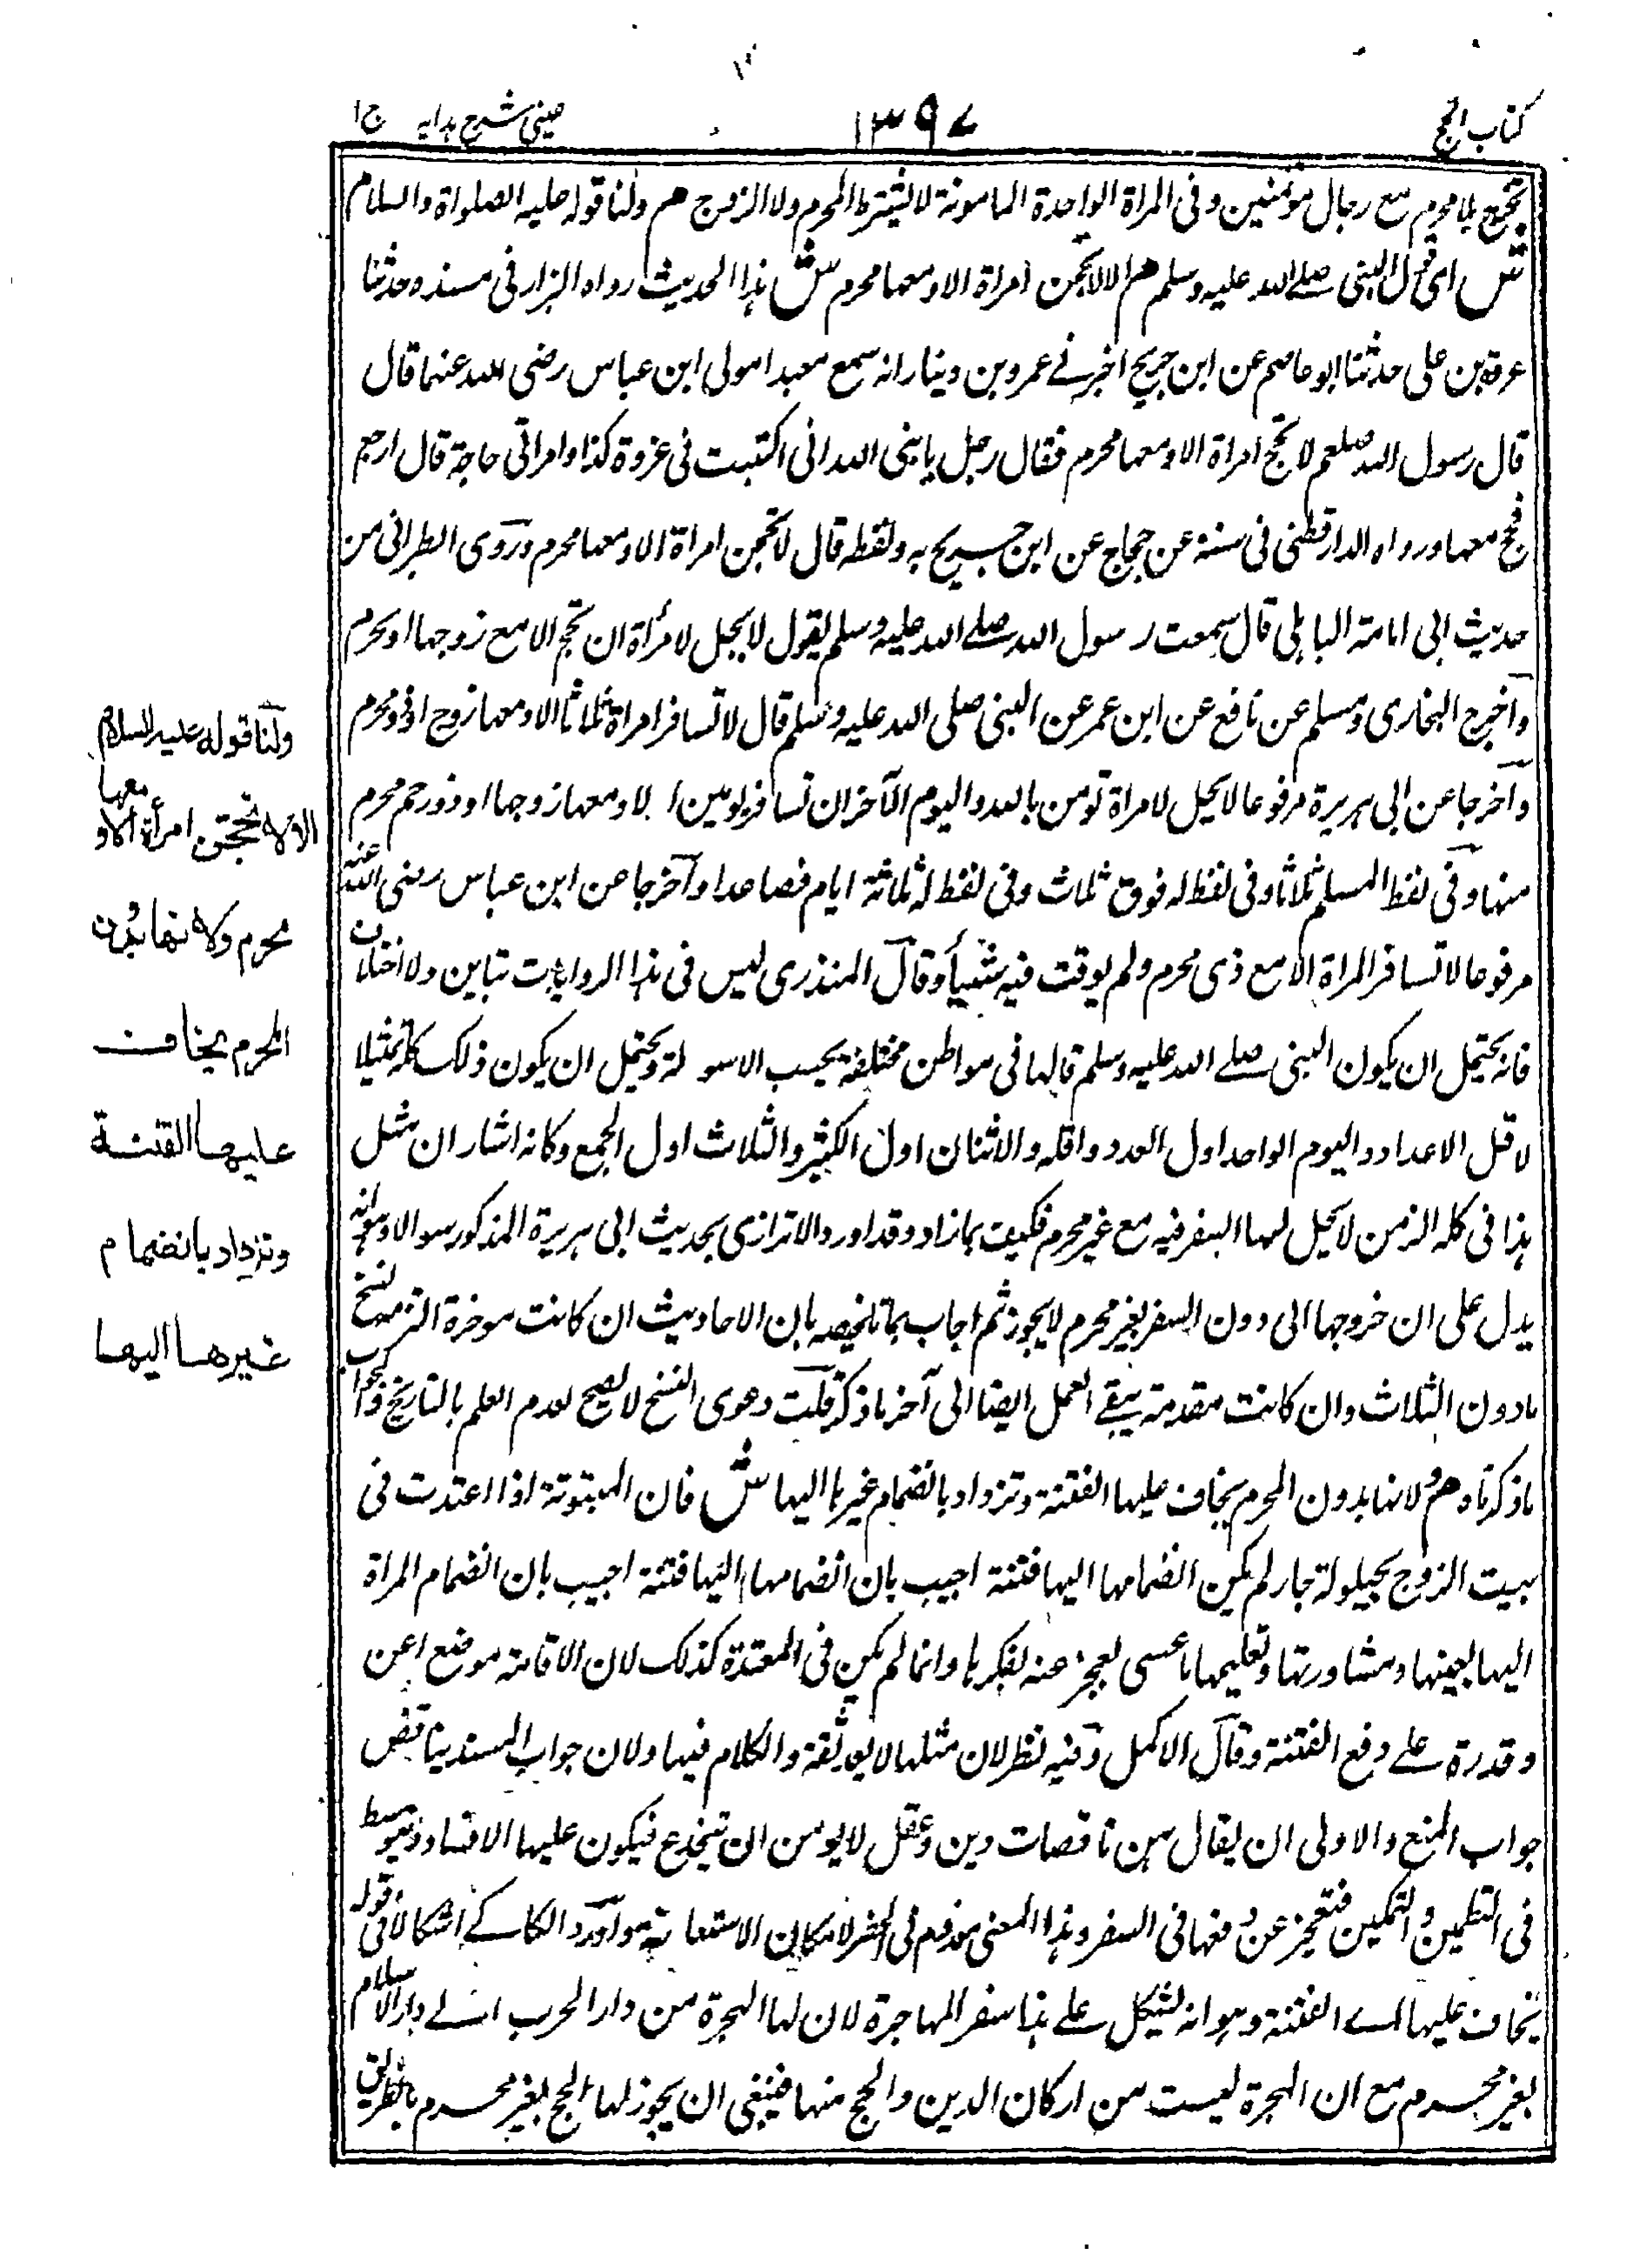 كتاب الحج
١٣٩٧
عينى شرح هدايه ج ١
تحج بلا محرم مع رجال مؤمنين وفى المراة الواحدة المامونة لا يشترط المحرم ولا الزوج هم ولنا قوله عليه الصلواة والسلام
ش اى قول النبى صلے الله عليه وسلم هم الا لا تحجن امراة الا ومعها محرم ش هذا الحديث رواه البزار فى مسنده حدثنا
عروة بن على حدثنا ابو عاصم عن ابن جريح اخبرنے عمرو بن دينار انه سمع معبدا مولى ابن عباس رضى الله عنهما قال
قال رسول الله صلعم لا تحج امراة الا ومعها محرم فقال رجل يا نبى الله انى اكتتبت فى غزوة كذا وامراتى حاجة قال ارجع
فحج معها ورواه الدارقطنى فى سننه عن حجاج عن ابن جريح به ولفظه قال لا تحجن امراة الا ومعها محرم وروى الطبرانى من
حديث ابى امامة الباهلى قال سمعت رسول الله صلے الله عليه وسلم يقول لا يحل لامرأة ان تحج الا مع زوجها او محرم
وآخرج البخارى ومسلم عن نافع عن ابن عمر عن النبى صلى الله عليه وسلم قال لا تسافر امراة ثلاثا الا ومعها زوج او ذو محرم
وآخرجا عن ابى هريرة مرفوعا لا يحل لامراة تومن بالله واليوم الآخر ان تسافر يومين الا ومعها زوجها او ذو رحم محرم
منها وفى لفظ المسلم ثلاثا وفى لفظ له فوق ثلاث وفى لفظ له ثلاثة ايام فصاعدا وآخرجا عن ابن عباس رضى الله عنه
مرفوعا لا تسافر المراة الا مع ذى محرم ولم يوقت فيه شيأ وقال المنذرى ليس فى هذا الروايات تباين ولا اختلاف
فانه يحتمل ان يكون النبى صلے الله عليه وسلم قالها فى مواطن مختلفة بحسب الاسولة ويحتمل ان يكون ذلك كله تمثيلا
لاقل الاعداد واليوم الواحد اول العدد واقله والاثنان اول الكثير والثلاث اول الجمع وكانه اشار ان مثل
هذا فى كله الزمن لا يحل لها السفر فيه مع غير محرم فكيف بما زاد وقد اورد الاترازى بحديث ابى هريرة المذكور سوالا وهو انه
يدل على ان خروجها الى دون السفر بغير محرم لا يجوز ثم اجاب بما تلخيصه بان الاحاديث ان كانت موخرة النسخ
ما دون الثلاث وان كانت مقدمة يبقے العمل ايضا الى آخر ما ذكر قلت دعوى النسخ لا يصح لعدم العلم بالتاريخ والجواب
ما ذكرناه هم ولانها بدون المحرم يخاف عليها الفتنة وتزداد بانضمام غيرها اليها ش فان المبتوتة اذا اعتدت فى
بيت الزوج بحيلولة جار لم يكن انضمامها اليها فتنة اجيب بان انضمامها اليها فتنة اجيب بان انضمام المراة
اليها يعينها ومشاورتها وتعليمها ما عسى يعجز عنه بفكرها وانما لم يكن فى المعتدة كذلك لان الاقامة موضع اعن
وقدرة علے دفع الفتنة وقال الاكمل وفيه نظر لان مثلها لا يعد ثقة والكلام فيها ولان جواب السند يناقض
جواب المنع والاولى ان يقال هن ناقصات دين وعقل لا يومن ان تيخدع فيكون عليها الافساد وتتوسط
فى التطمين والتمكين فتعجز عن دفعها فى السفر وهذا المعنى معدوم فى الحضر لامكان الاستعانة هو آورد الكاكے اشكالا فى قوله
يخاف عليها اے الفتنة وهو انه يشكل علے هذا سفر المهاجرة لان لها الهجرة من دار الحرب الے دار الاسلام
بغير محرم مع ان الهجرة ليست من اركان الدين والحج منها فينبغى ان يجوز لها الحج بغير محرم بالطريق
ولنا قوله عليه السلام
الا لا تحجن امرأة الا ومعها
محرم ولانها بدون
المحرم يخاف
عليها الفتنة
وتزداد بانضمام
غيرها اليها